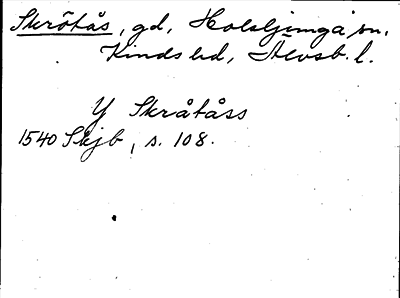 Skrötås, gd, Holsljunga sn.
Kinds hd, Älvsb. l.
Y Skråtåss
1540 Skjb, s. 108.